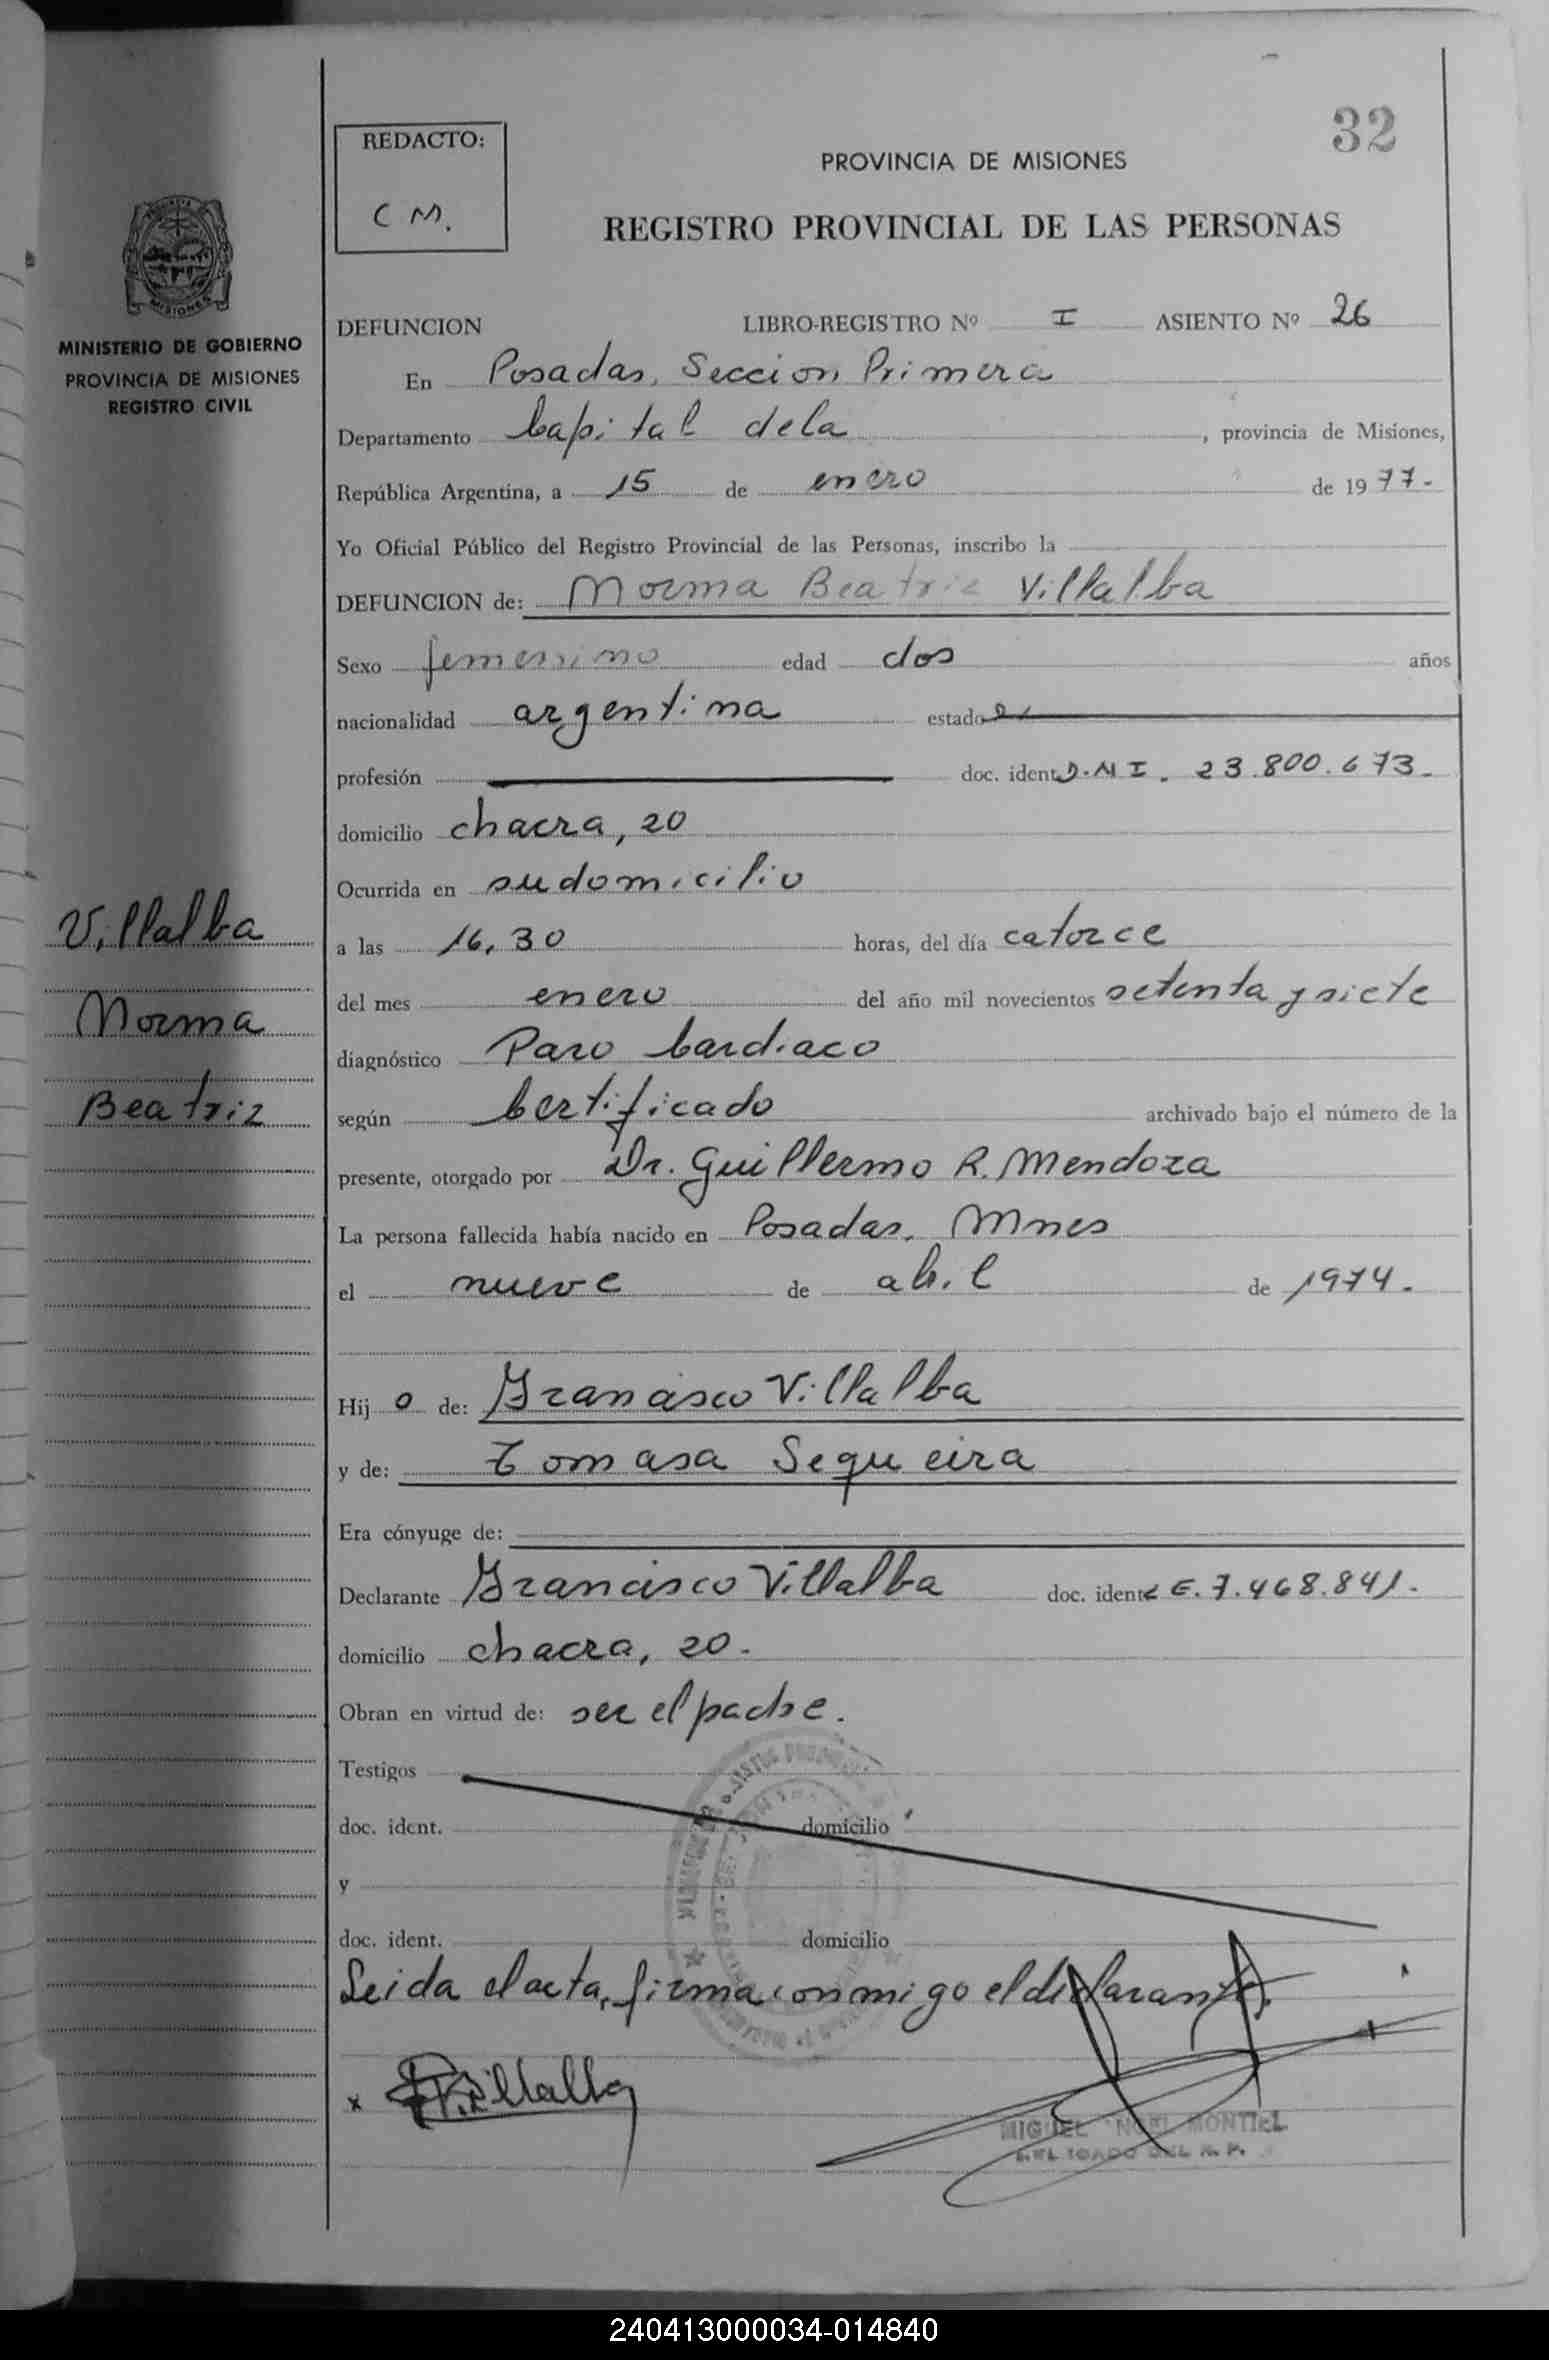 32
REDACTO:
C M.
PROVINCIA DE MISIONES
REGISTRO PROVINCIAL DE LAS PERSONAS
MISIONES
MINISTERIO DE GOBIERNO
PROVINCIA DE MISIONES
REGISTRO CIVIL
DEFUNCION LIBRO-REGISTRO Nº I ASIENTO Nº 26
En Posadas, Seccion Primera
Departamento Capital dela, provincia de Misiones,
República Argentina, a 15 de enero de 1977.-
Yo Oficial Público del Registro Provincial de las Personas, inscribo la
DEFUNCION de: Norma Beatriz Villalba
Sexo femenino edad dos años
nacionalidad argentina estado
profesión doc. ident. D.N I. 23.800.673.-
domicilio chacra, 20
Ocurrida en su domicilio
Villalba
Norma
Beatriz
a las 16,30 horas, del día catorce
del mes enero del año mil novecientos setenta y siete
diagnóstico Paro Cardiaco
según Certificado archivado bajo el número de la
presente, otorgado por Dr. Guillermo R. Mendoza
La persona fallecida había nacido en Posadas, Mnes
el nueve de abril de 1974.
Hij o de: Francisco Villalba
y de: Tomasa Sequeira
Era cónyuge de:
Declarante Francisco Villalba doc. ident. 7.468.841.-
domicilio chacra, 20.-
Obran en virtud de: ser el padre.
Testigos
doc. ident. domicilio
y
doc. ident. domicilio
Leida el acta, firma conmigo el declarante.
x F Villalba
MIGUEL ANGEL MONTIEL
DELEGADO DEL R. P.
240413000034-014840